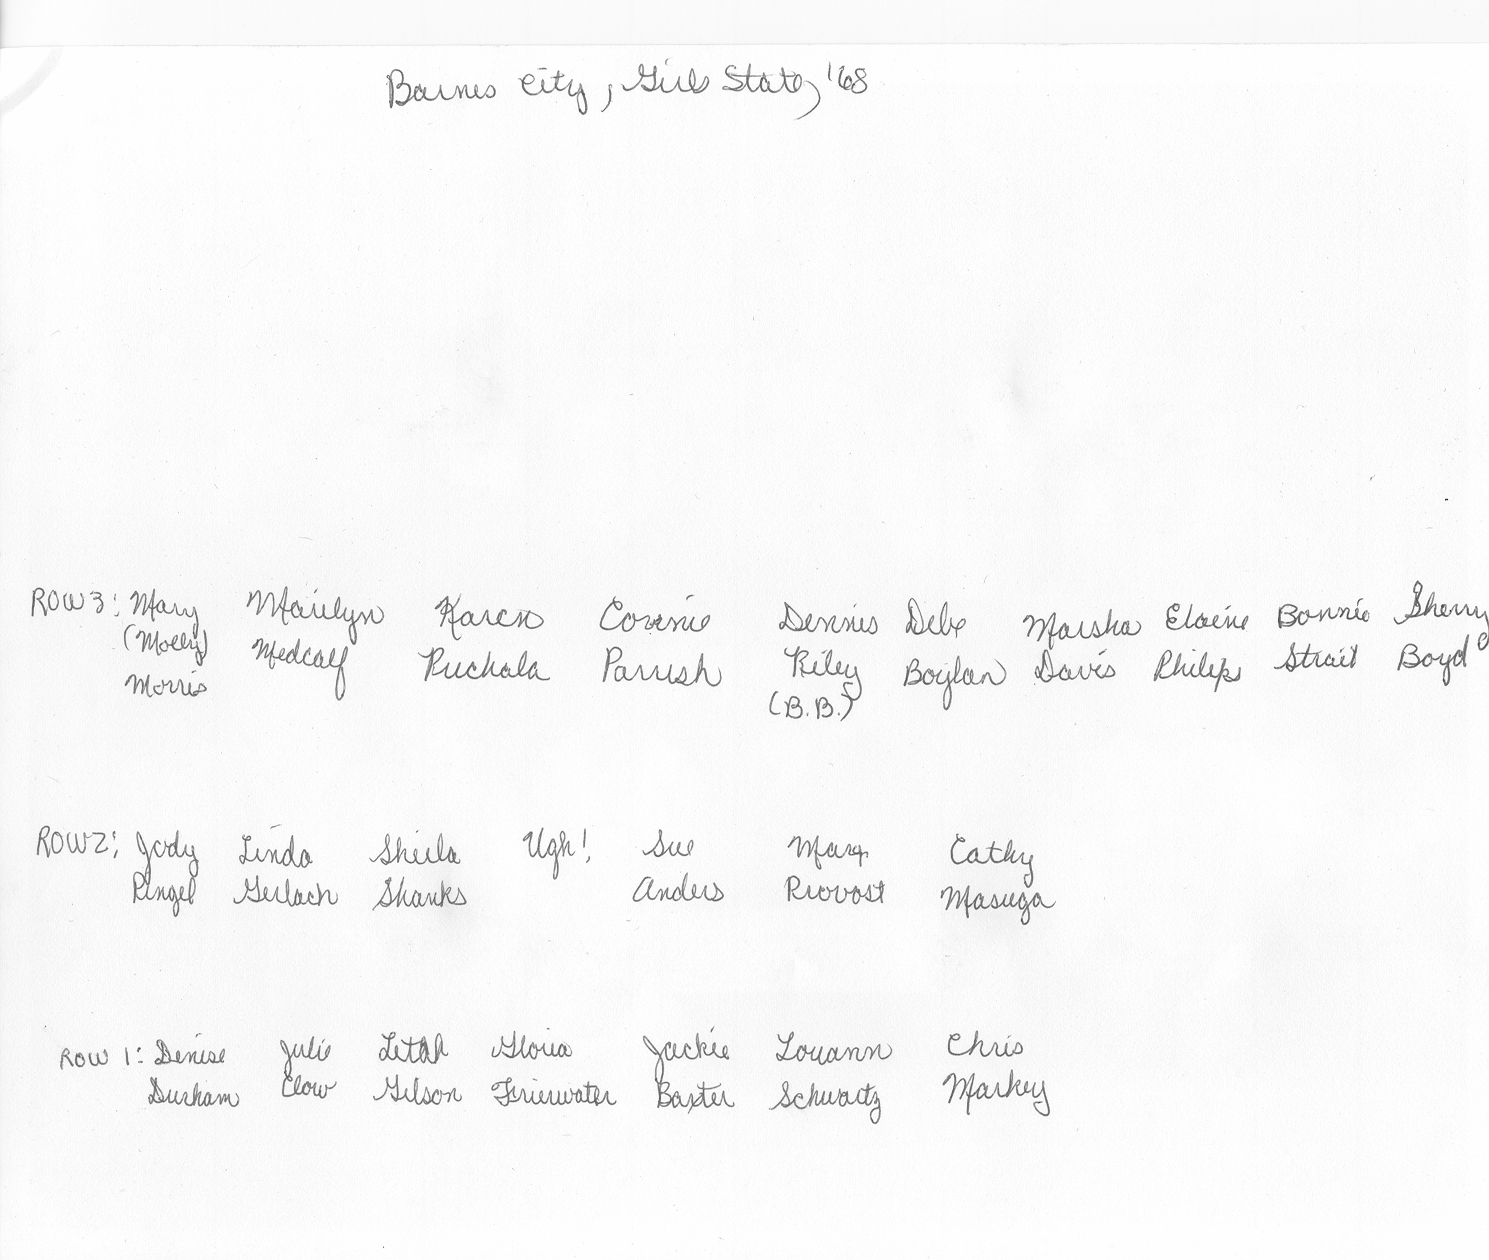 Barnes City, Girls State, '68
ROW 3: Mary Marilyn Karen Connie Dennis Debe Marsha Elaine Bonnie Sherry
(Molly) Medcalf Puchala Parrish Riley Boylan Davis Philips Strait Boyd
Morris (B.B.)
ROW 2: Jody Linda Sheila Ugh! Sue Mary Cathy
Ringel Gerlach Shanks Anders Provost Masuga
ROW 1: Denise Julie Letah Gloria Jackie Louann Chris
Durham Clow Gilson Baxter Schwartz Markey